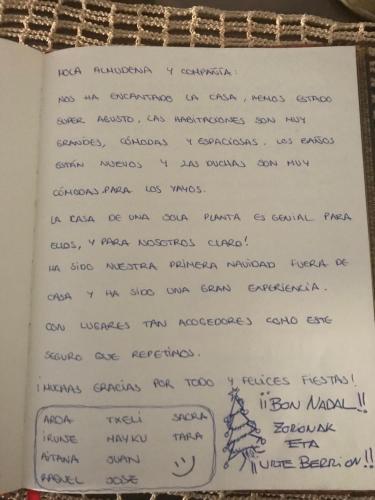 HOLA ALMUDENA Y COMPAÑÍA:
NOS HA ENCANTADO LA CASA, HEMOS ESTADO
SUPER AGUSTO, LAS HABITACIONES SON MUY
GRANDES, CÓMODAS Y ESPACIOSAS. LOS BAÑOS
ESTÁN NUEVOS Y LAS DUCHAS SON MUY
CÓMODAS PARA LOS YAYOS.
LA CASA DE UNA SOLA PLANTA ES GENIAL PARA
ELLOS, Y PARA NOSOTROS CLARO!
HA SIDO NUESTRA PRIMERA NAVIDAD FUERA DE
CASA Y HA SIDO UNA GRAN EXPERIENCIA.
CON LUGARES TAN ACOGEDORES COMO ESTE
SEGURO QUE REPETIMOS.
¡MUCHAS GRACIAS POR TODO Y FELICES FIESTAS!
AROA TXELI SACRA
IRUNE NAYKU TARA
AITANA JUAN
RAQUEL JOSE
¡¡BON NADAL!!
ZORIONAK
ETA
¡¡URTE BERRION!!